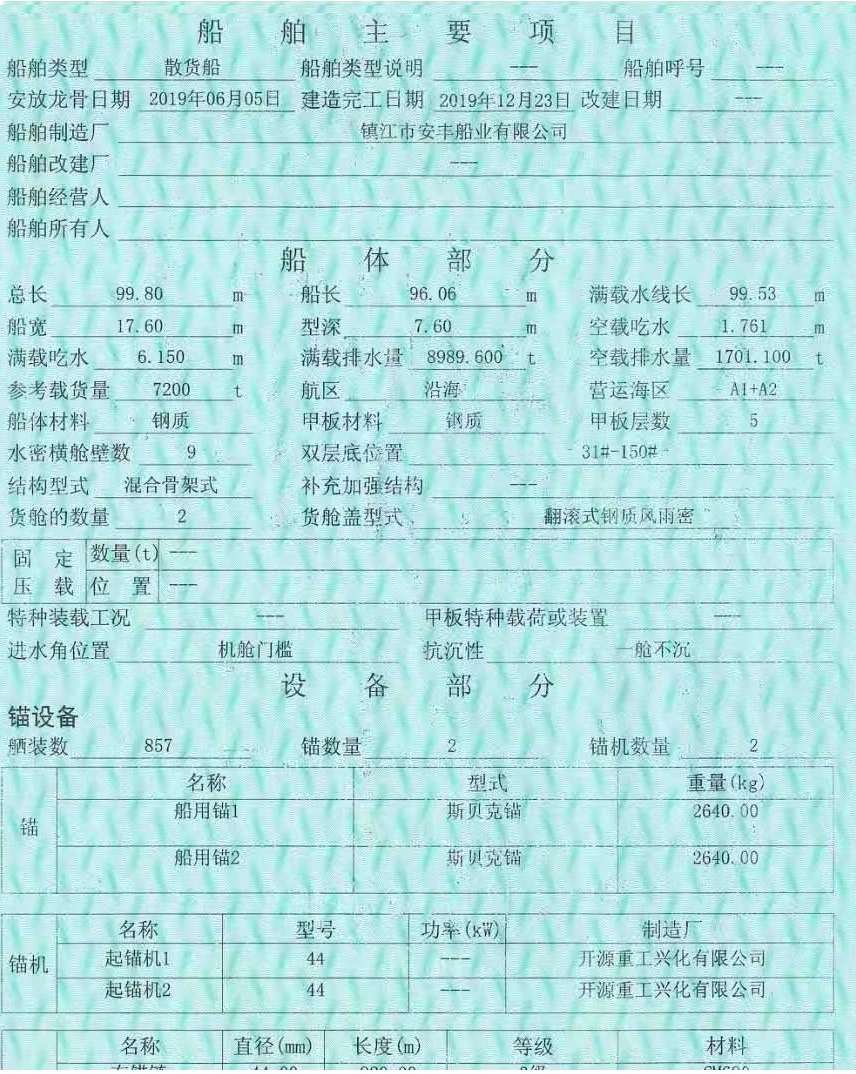 船舶主要项目
船舶类型 散货船 船舶类型说明 --- 船舶呼号 ---
安放龙骨日期 2019年06月05日 建造完工日期 2019年12月23日 改建日期 ---
船舶制造厂 镇江市安丰船业有限公司
船舶改建厂 ---
船舶经营人
船舶所有人
船体部分
总长 99.80 m 船长 96.06 m 满载水线长 99.53 m
船宽 17.60 m 型深 7.60 m 空载吃水 1.761 m
满载吃水 6.150 m 满载排水量 8989.600 t 空载排水量 1701.100 t
参考载货量 7200 t 航区 沿海 营运海区 A1+A2
船体材料 钢质 甲板材料 钢质 甲板层数 5
水密横舱壁数 9 双层底位置 31#-150#
结构型式 混合骨架式 补充加强结构 ---
货舱的数量 2 货舱盖型式 翻滚式钢质风雨密
固定 数量(t) ---
压载 位置 ---
特种装载工况 --- 甲板特种载荷或装置 ---
进水角位置 机舱门槛 抗沉性 一舱不沉
设备部分
锚设备
舾装数 857 锚数量 2 锚机数量 2
名称 型式 重量(kg)
锚
船用锚1 斯贝克锚 2640.00
船用锚2 斯贝克锚 2640.00
名称 型号 功率(kW) 制造厂
锚机
起锚机1 44 --- 开源重工兴化有限公司
起锚机2 44 --- 开源重工兴化有限公司
名称 直径(mm) 长度(m) 等级 材料